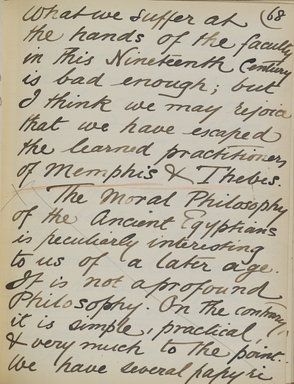 What we suffer at (68
the hands of the faculty
in this Nineteenth Century
is bad enough; but
I think we may rejoice
that we have escaped
the learned practitioners
of Memphis & Thebes.
The Moral Philosophy
of the Ancient Egyptians
is peculiarly interesting
to us of a later age.
It is not a profound
Philosophy. On the contrary,
it is simple, practical,
& very much to the point.
We have several papyri